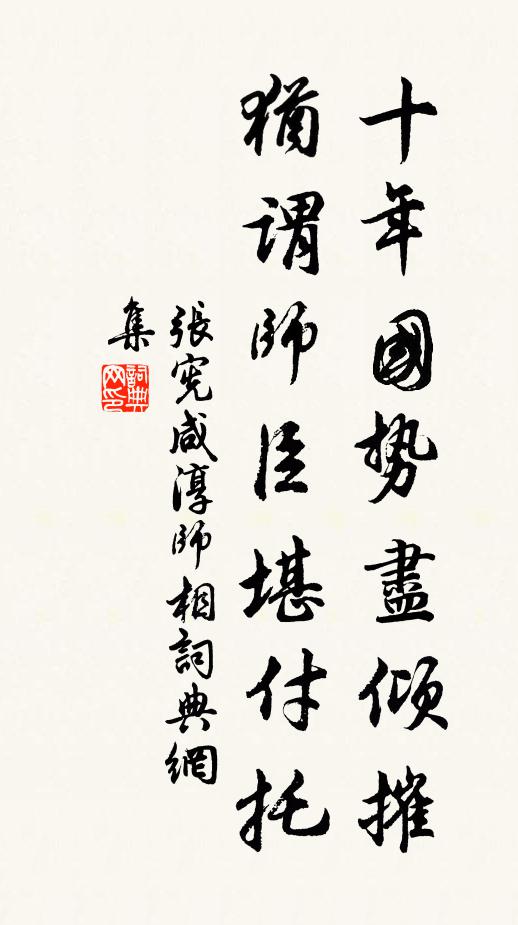 十年國勢盡傾摧
猶謂師臣堪付托
張憲咸淳師相詞典網
集
詞典
网印